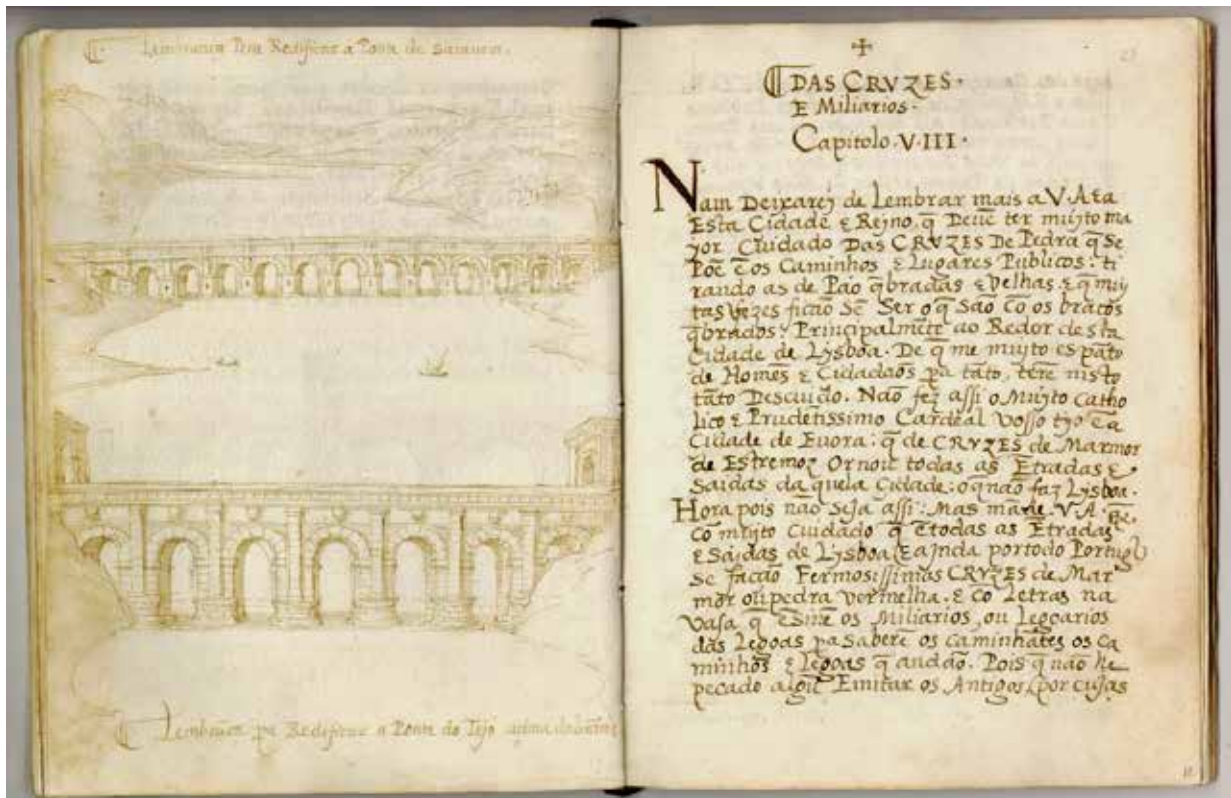 Lembrança Pera Redificar a Ponte de Sacavem.
Lembrança pa Redificar a Ponte do Tejo acima
✝
DAS CRVZES.
E Miliarios.
Capitolo.V.III.
Nam Deixarej de Lembrar mais a V.A ẽa
Esta Cidade & Reyno, q̃ Deuẽ ter mujto ma
yor Cuidado Das CRVZES De Pedra q̃ Se
Põe ẽ os Caminhos & Lugares Publicos: ti
rando as de Pao q̃bradas & Velhas, & q̃ muj
tas Vezes ficão Sẽ Ser o q̃ São Cõ os braços
q̃brados, Principalmẽte ao Redor desta
Cidade de Lysboa. De q̃ me mujto espãto
de Homẽs & Cidadaõs pa tãto, terẽ nisto
tãto Descuido. Não fez assi o Mujto Catho
lico & Prudẽtissimo Cardeal Vosso tyo ẽ a
Cidade de Euora: q̃ de CRVZES de Marmor
de Estremoz Ornou todas as Ẽtradas &
Saidas da quela Cidade: o q̃ não faz Lysboa.
Hora pois não Seja assi: Mas mãde V.A.
Cõ mujto Cuidado q̃ ẽ todas as Ẽtradas
& Saidas de Lysboa, E ajnda por todo Portugl
Se facão Fermosissimas CRVZES de Mar
mor ou pedra vermelha. & Cõ Letras na
Vasa q̃ ẽSinẽ os Miliarios, ou Legoarios
das Legoas pa Saberẽ os caminhãtes os ca
minhos & Legoas q̃ andão. Pois q̃ não he
pecado algũ Emitar os Antigos, por cujas